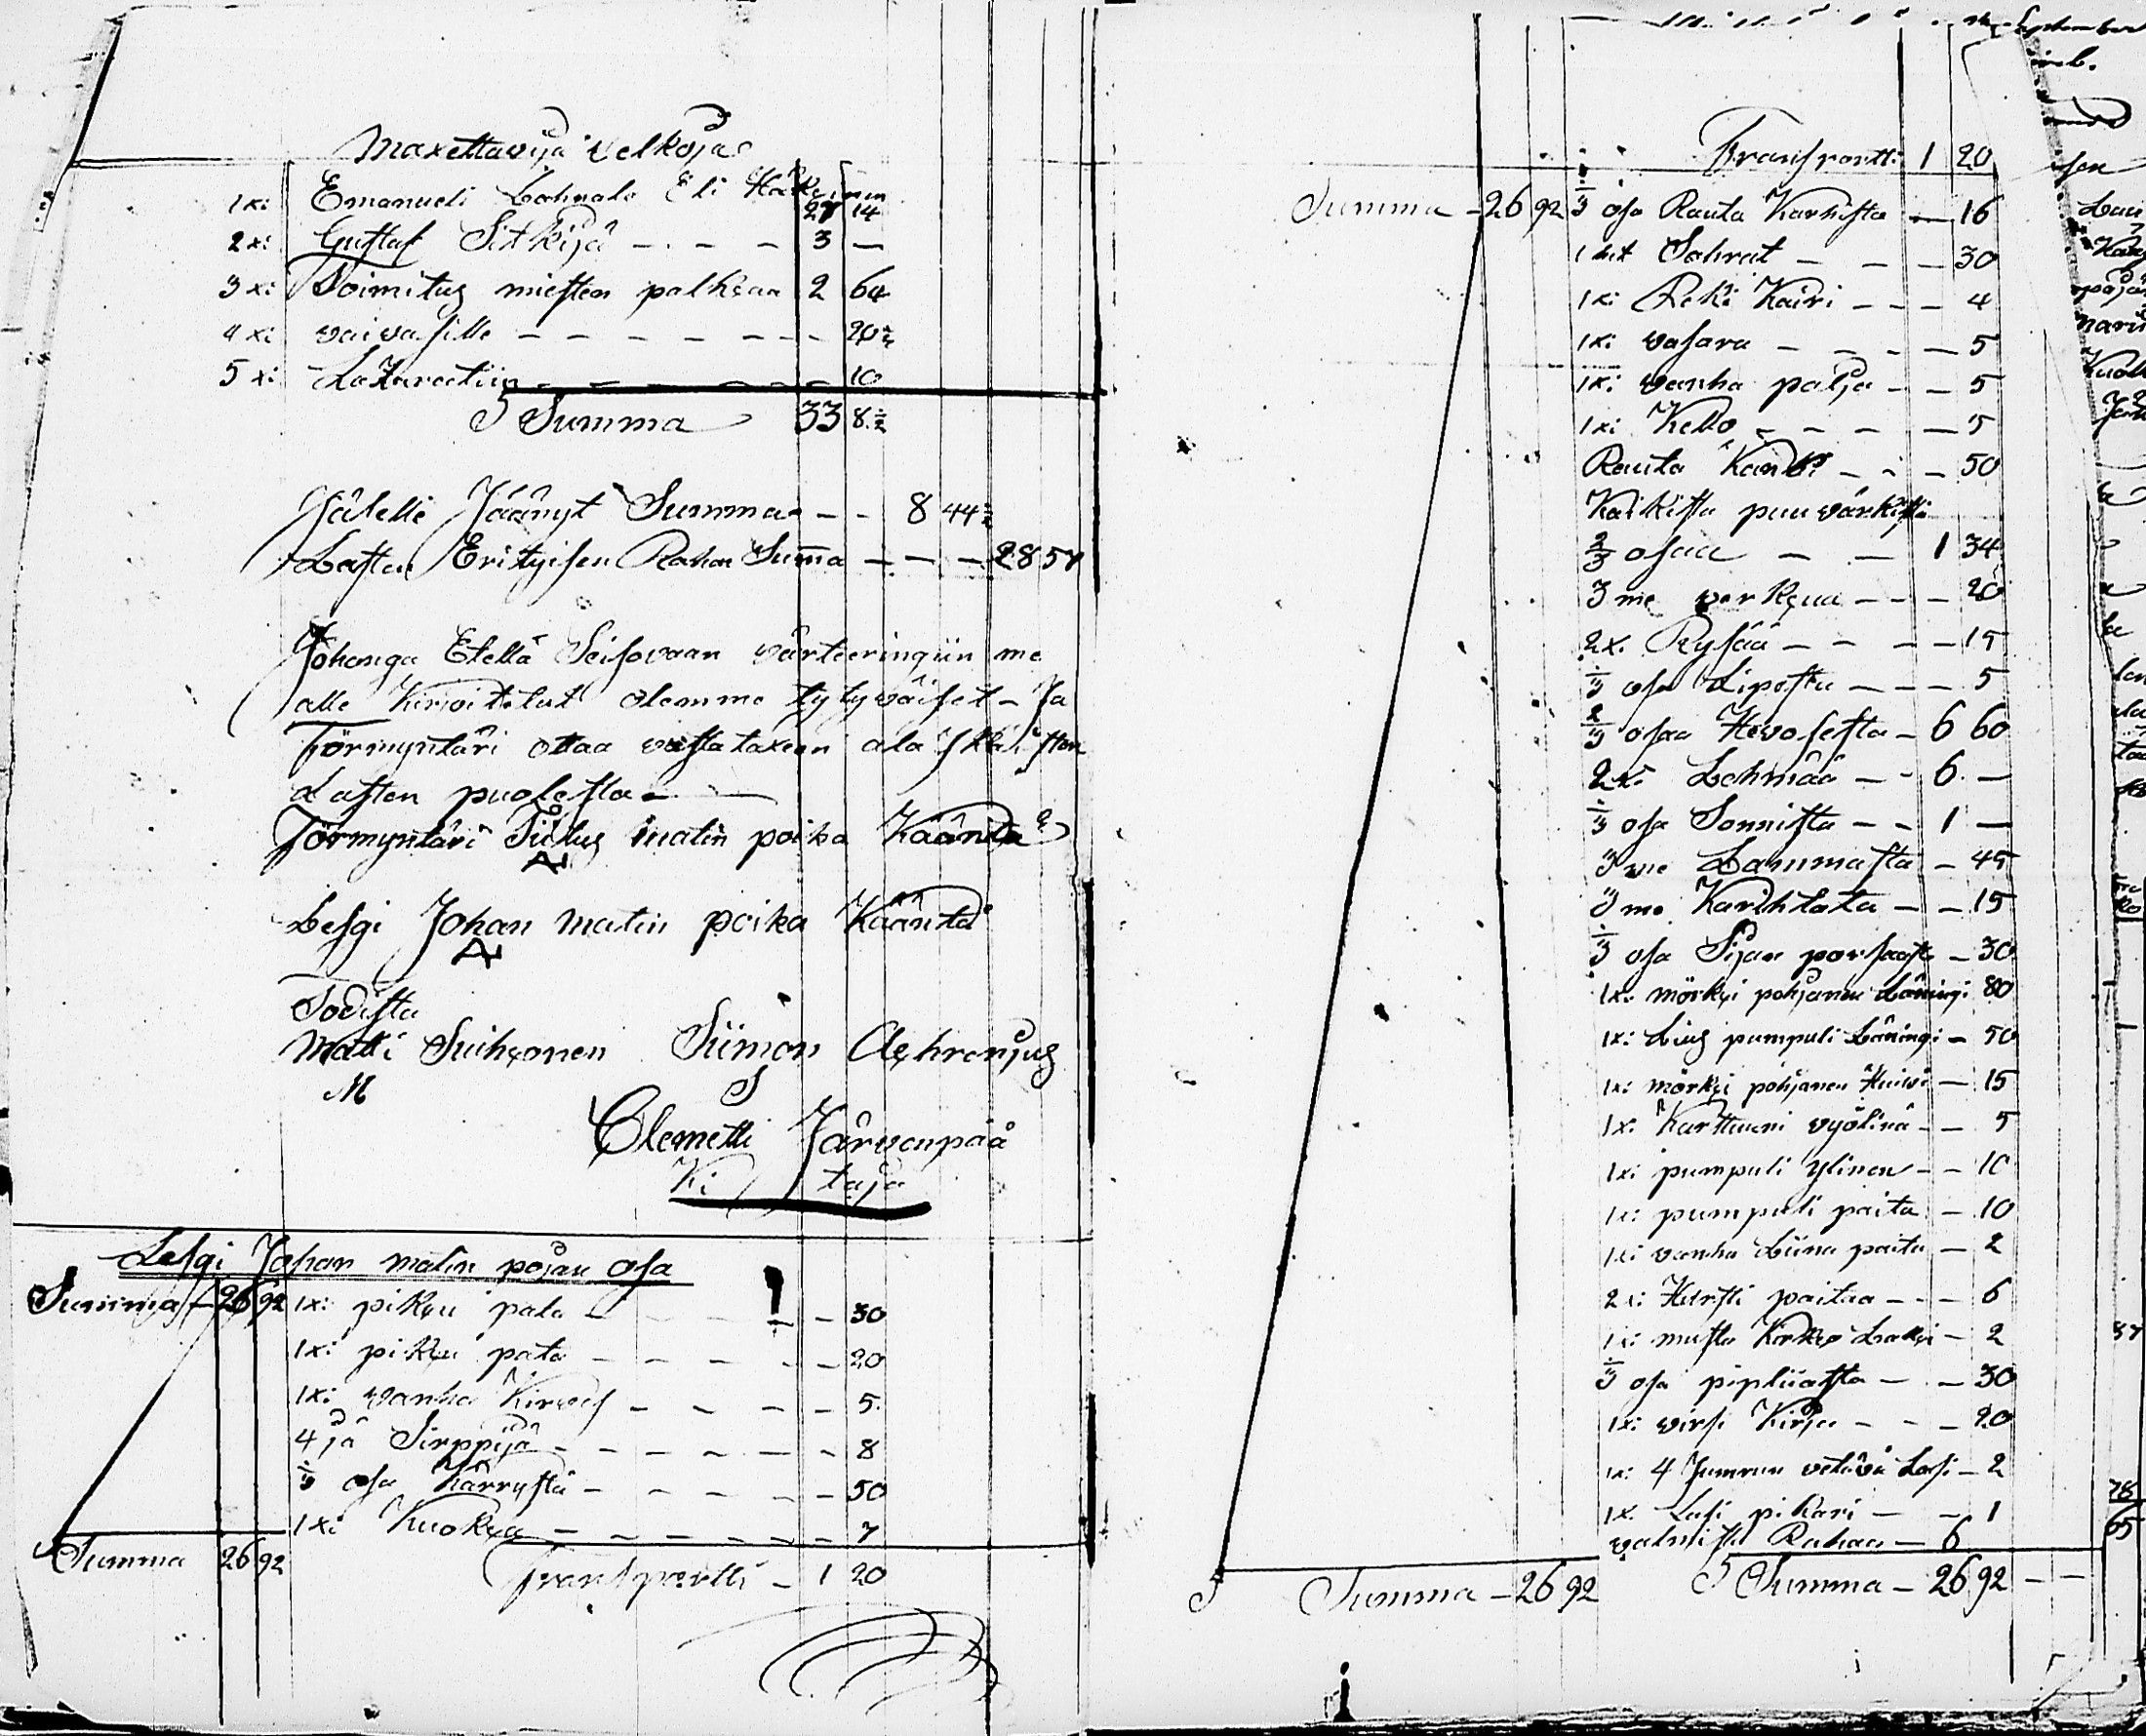 Maxettavija velkoja
1xi Emanueli Lohnala Eli Härkönen 27 14
2xi Gustaf Sitkijä - - - 3 —
3xi Toimitus miesten palkkaa 2 64
4xi vaivasille - - - - - - 20½
5xi Lazarettiin - - - - - 10
Summa 33 8½
Jälelle Jäänyt Summa - - 8 44½
Lasten Erityisen Rahan Suma - - - 28 57
Johonga Etellä Seisovaan värteeringiin me
alle kirioitetut olemme tytyväiset - Ja
Förmyntäri ottaa vastataxeen ala
Lasten puolesta -
Förmyntäri Tiitus matin poika Kääntä
Lesgi Johan Matin poika Kääntä
Todista
Matti Suihkonen Siimon
M S
Clemetti Järvenpää
Ki taja
Lesgi Johan matin pojan osa
Summa - 26 92 1xi pikku pala - - - - 30
1xi pikku pata - - - - - 20
1xi vanha Kirves - - - - 5
4jä Sirppijä - - - - - - 8
⅓ osa Kärrystä - - - - - 50
1xi Kuokka - - - - - - 7
Summa 26 92 Transportti - 1 20
September
Transportti 1 20
Summa - 26 92 ⅓ osa Rauta Karhista - 16
Sahrat - - - 30
1xi Reki Kairi - - - 4
1xi vasara - - - - 5
1xi vanha palja - - 5
1xi Kello - - - - 5
Rauta Kanki - - - 50
Kaikista puuvärkistä
⅔ osaa - - 1 34
3me verkkua - - - 20
2x. Rysää - - - - 15
⅓ osa Liposta - - - 5
⅔ osaa Hevosesta - 6 60
2xi Lehmää - - 6 —
⅓ osa Sonnista - - 1 —
3me Lammasta - 45
3me Karihtata - - 15
⅓ osa Sijan porsaasta - 30
1xi mörkki pohjanen Läningi 80
1xi pumpuli Läningi - 50
1xi mörkki pohjanen Huivi - 15
1xi Karttuuni vyölinä - - 5
1xi pumpuli ylinen - - 10
1xi pumpuli paita - 10
1xi vanha Liina paita - 2
2xi Hursti paitaa - - - 6
1xi musta Kirkko Lakki - 2
⅓ osa pipliiasta - - 30
1xi virsi Kirja - - - 20
1xi 4 Jumrun vetävä Lasi - 2
1x. Lasi pikari - - - 1
valmista Rahaa - 6
Summa - 26 92 Summa - 26 92 - -